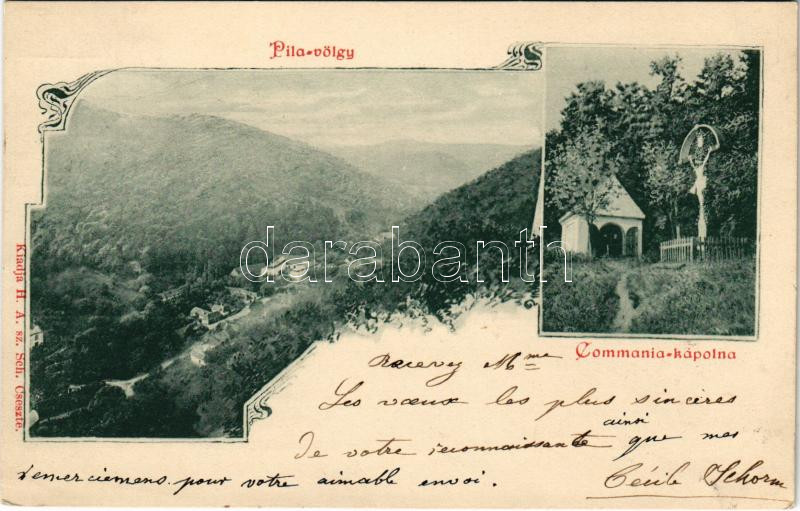 Pila-völgy
Commania-kápolna
Kiadja H. A. sz. Sch. Cseszte.
darabanth
Recevez Mme
Les vœux les plus sincères
de votre reconnaissante ainsi que mes
remerciemens pour votre aimable envoi.
Cécile Schorm